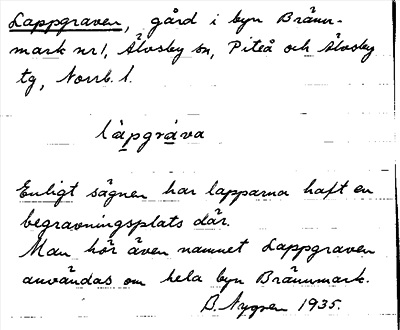 Lappgraven, gård i byn Bränn-
mark nr 1, Älvsby sn, Piteå och Älvsby
tg, Norrb. l.
làpgràva
Enligt sägnen har lapparna haft en
begravningsplats där.
Man hör även namnet Lappgraven
användas om hela byn Brännmark.
B. Nygren 1935.